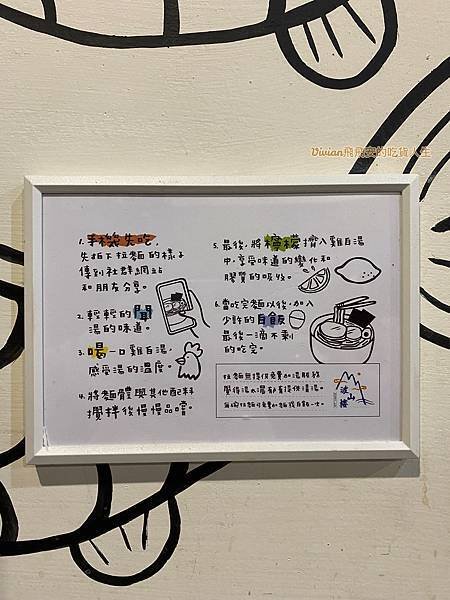 Vivian飛飛安的吃貨人生
1. 手機先吃,
先拍下拉麵的樣子
傳到社群網站
和朋友分享。
2. 輕輕的聞
湯的味道。
3. 喝一口雞白湯,
感受湯的溫度。
4. 將麵體與其他配料
攪拌後慢慢品嚐。
5. 最後,將檸檬擠入雞白湯
中,享受味道的變化和
膠質的吸收。
6. 當吃完麵以後,加入
少許的白飯
最後一滴不剩
的吃完。
拉麵無提供免費加湯服務
覺得湯太濃有提供清湯。